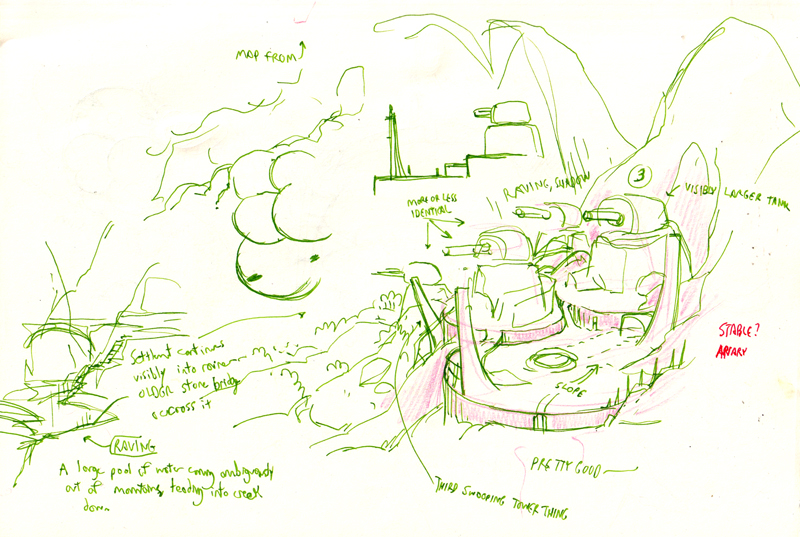 MAP FROM
RAVING, SHADOW
MORE OR LESS
IDENTICAL
3
VISIBLY LARGER TANK
STABLE?
APIARY
SLOPE
PRETTY GOOD
THIRD SWOOPING TOWER THING
Settlment continues
visibly into ravine w
OLDER stone bridge
across it
RAVING
A large pool of water coming ambiguously
out of mountains, feeding into creek
down